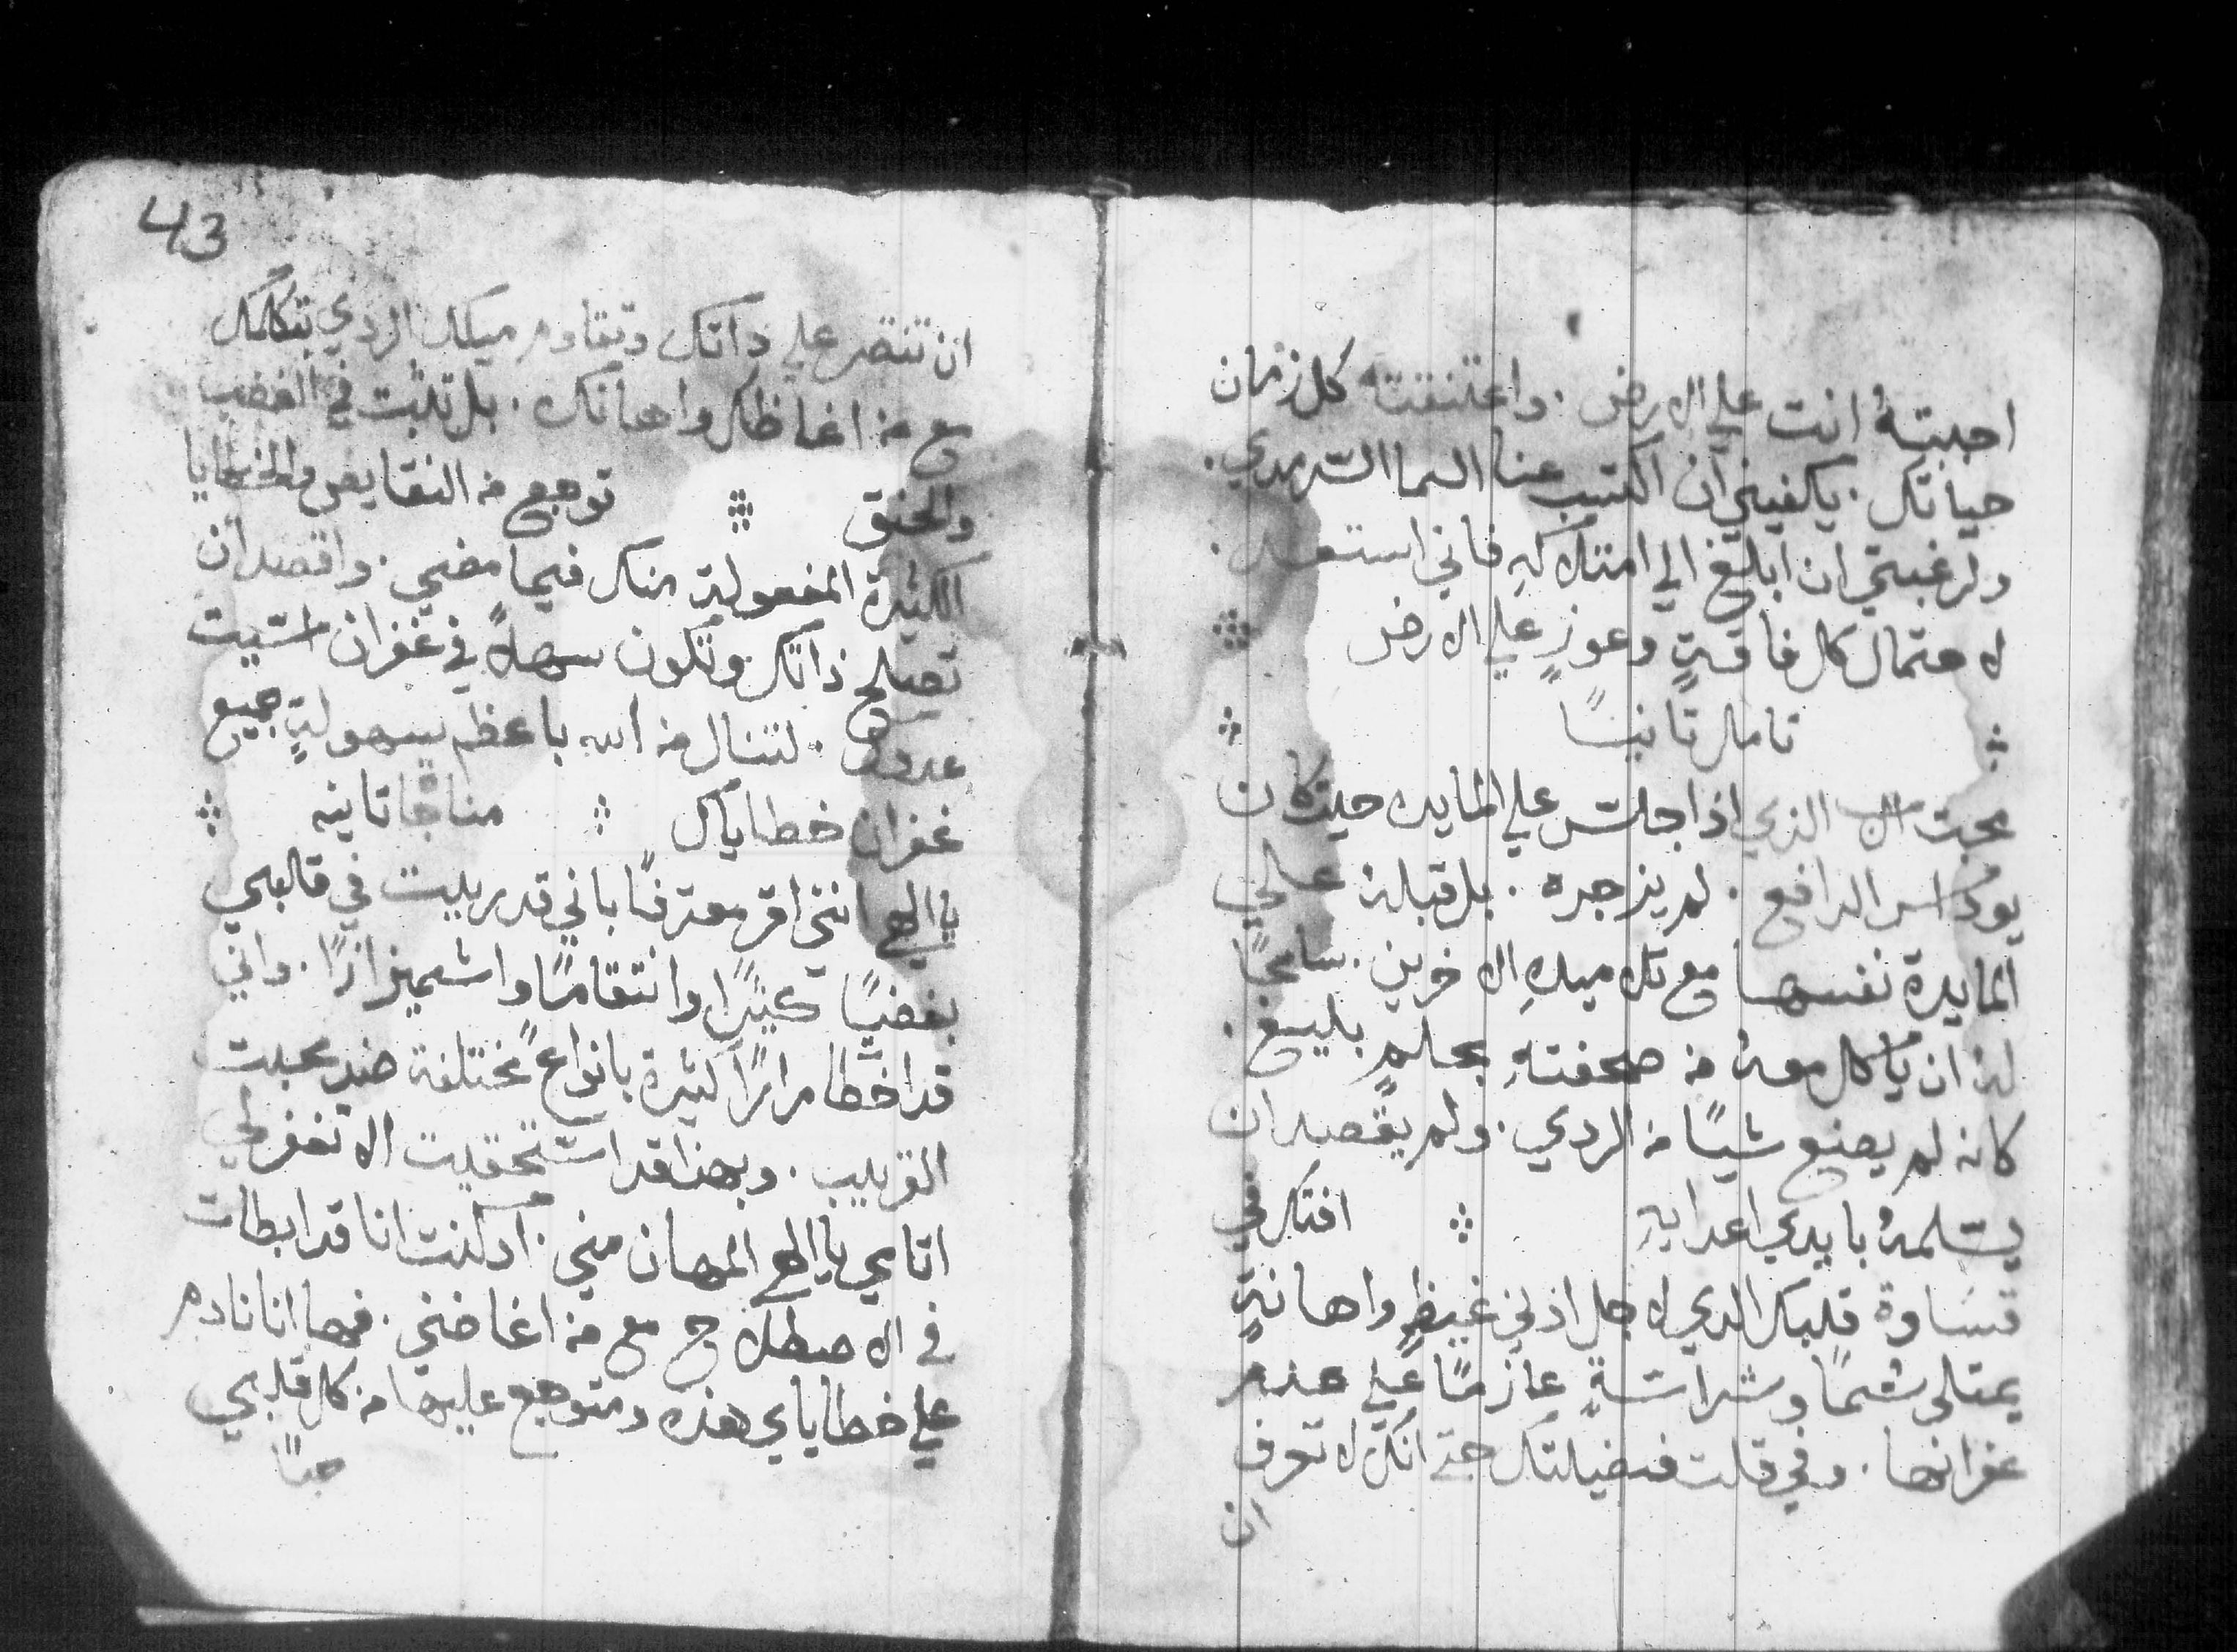 احببتهُ انت علي الارض . واعتنقته كل زمان
حياتك . يكفيني ان اكتسب غنا السما السرمدي .
ولرغبتي ان ابلغ الي امتلاكهِ فاني استعد .
لاحتمال كل فاقةٍ وعوزٍ علي الارض
تامل تانيًا
محبت الرب الذي اذا جلس علي المايده حيت كان
يوداس الدافع . لم يزجره . بل قبله علي
المايدة نفسها مع تلاميدهِ الاخرين . سامحًا
له ان ياكل معهُ من صحفتهِ بحلمٍ بليغ .
كانه لم يصنع شيًا من الردي . ولم يقصد ان
يسلمهُ بايدي اعدايهِ افتكر في
قساوة قلبك الدي لاجل ادني غيظٍ واهانةٍ
يمتلي سُمًا وشراسةٍ عازمًا علي عدم
غفرانها . وفي قلت فضيلتك حتي انك لا تعرف
ان
43
ان تنتصر علي داتك وتقاوم ميلك الردي بتكلمك
مع من اغاظك واهانك . بل تلبت في الغضب
والحنق توجع من النقايص والخطايا
الكثيرة المفعولية منك فيما مضي . واقصد ان
تصلح ذاتك وتكون سهلاً في غفران اسيت
عدوك . لتنال من الله باعظم سهوليةٍ جميع
غفران خطاياك مناجاة تانيه
يا الهي انني اقر معترفًا باني قد ربيت في قالبي
بغضًا كثيرًا وانتقامًا واشميزازًا . واني
قد اخطا مرارًا كثيرة بانواعٍ مختلفة ضد محبت
القريب . وبهذا قد استحقيت الا تغفر لي
اتامي يا الهي المهان مني . اد كنت انا قد ابطات
في الاصطلاح مع من اغاضني . فها انا نادم
علي خطاياي هذه ومتوجع عليها من كل قلبي
حبًا